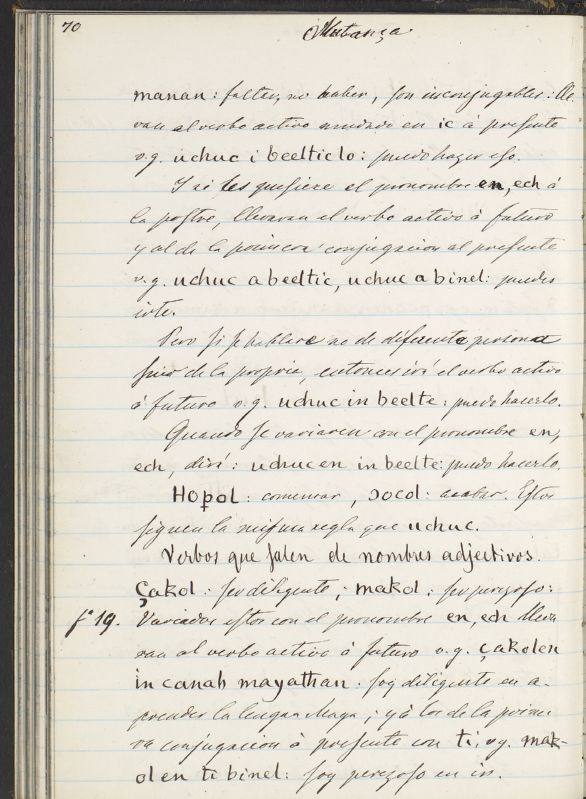 70
Matança
manan: faltar, no haber, son inconjugables: lle
van al verbo activo mudado en ic á presente
v.g. uchuc i beelticlo: puedo hazer eso.
Y si les pusiere el pronombre en, ech á
la postre, llevaran el verbo activo á futuro
y al de la primera conjugacion al presente
v.g. uchuc a beeltic, uchuc a binel: puedes
irte.
Pero si se hablare no de diferente persona
sino de la propria, entonces irá el verbo activo
á futuro v.g. uchuc in beelte: puedo hacerlo.
Quando se variaren con el pronombre en,
ech, dirá: uchucen in beelte: puedo hacerlo.
Hoppol: comenzar, ɔocol: acabar. Estos
siguen la misma regla que uchuc.
Verbos que salen de nombres adjectivos.
Çakol: ser diligente; makol: ser perezoso:
fº 19. Variados estos con el pronombre en, ech lleva
ran al verbo activo á futuro v.g. çakolen
in canab mayathan. soy diligente en a-
prender la lengua Maya; y á los de la prime
ra conjugacion á presente con ti, v.g. mak-
olen ti binel: soy perezoso en ir.